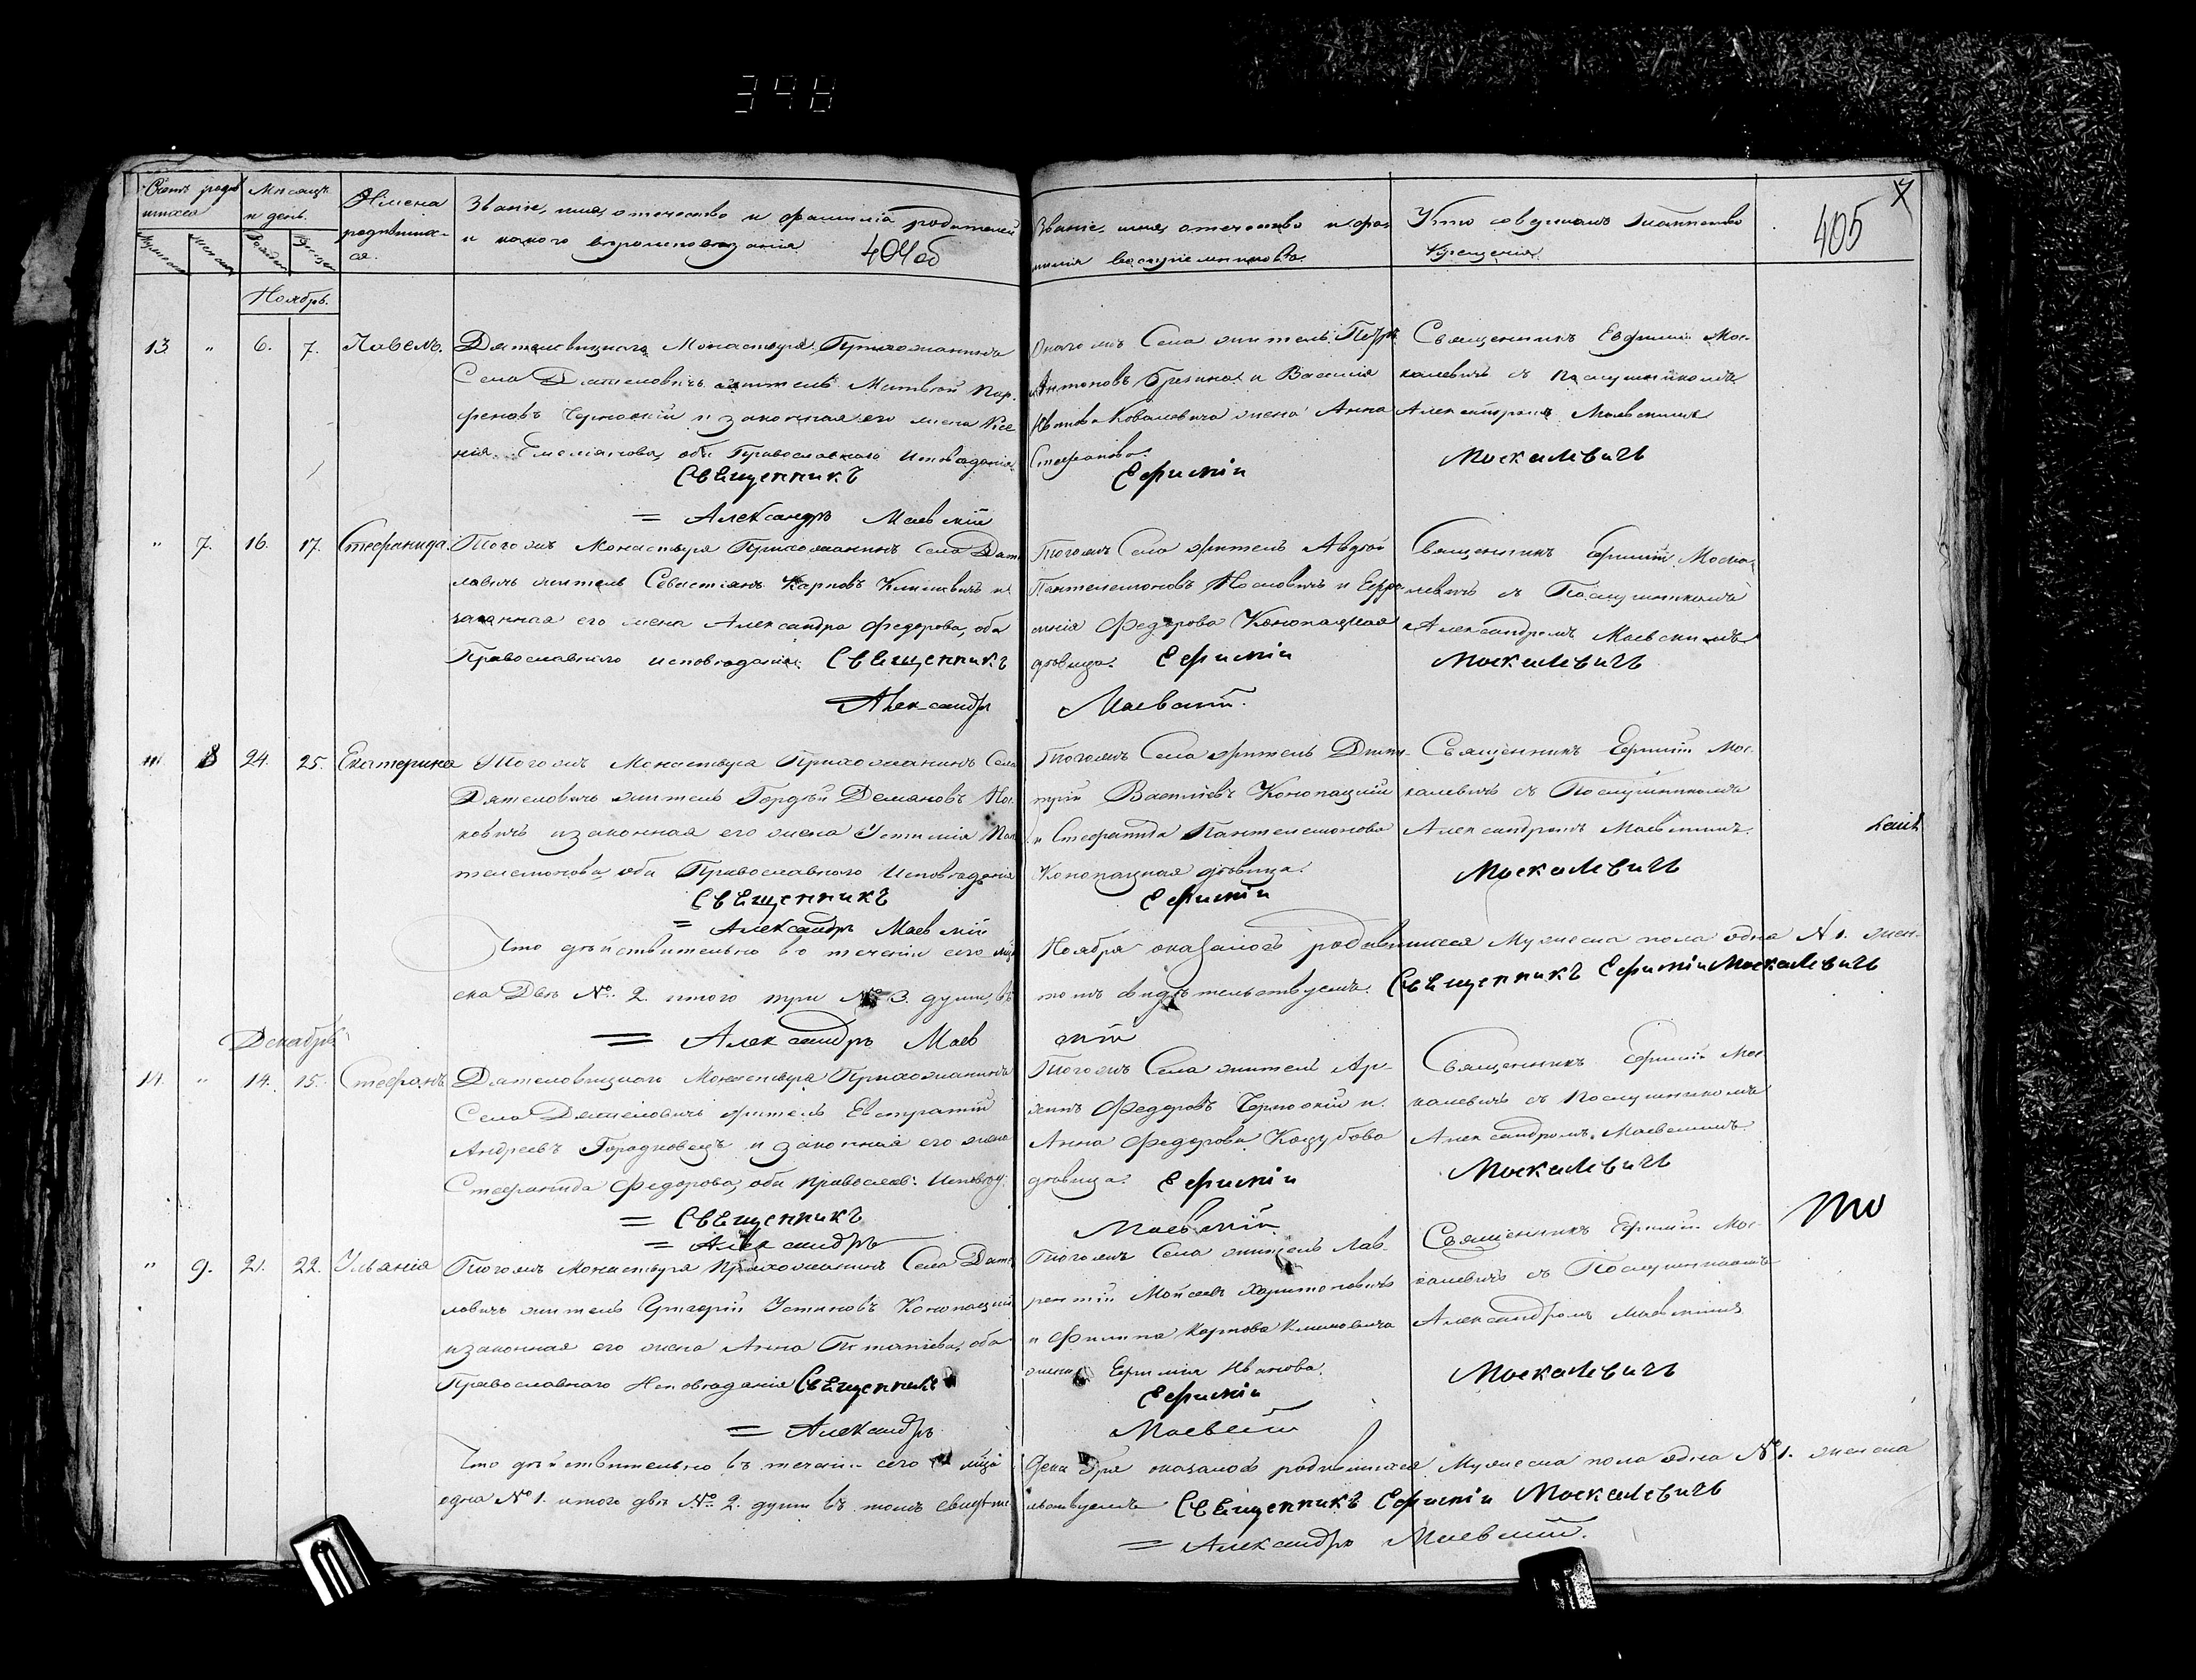 398
Счетъ родив
шихся
Мѣсяцъ
и день.
Имена
родивших-
ся.
Званіе, имя, отечество и фамилія родителей
и какого вѣроисповѣданія
404об
Званіе, имя, отечество и фа-
милія воспріемниковъ
Кто совершалъ таинство
Крещенія
405
Ноябрь.
13. " 6. 7. Павелъ.
Дятеловицкаго Монастыря Прихожанинъ
Села Дятеловичъ житель Матвѣй Пар-
феновъ и законная его жена Ксе
нія Емеліянова, оба Православнаго Исповѣданія
Священникъ
= Александръ Маевскій
Села житель Петръ
Антоновъ и Василія
Иванова Ковалевича жена Анна
Стефанова.
Ефимій
Священникъ Ефимій Мос-
калевичъ съ Послушникомъ
Александромъ Маевскимъ
Москалевичъ
" 7. 16. 17. Стефанида
Тогожъ Монастыря Прихожанинъ Села Дяте
ловичъ житель Севастіянъ Карповъ Климовичъ и
законная его жена Александра Федорова, оба
Православнаго исповѣданія. Священникъ
Александръ
Тогожъ Села житель Авдѣй
Пантелемоновъ Носковичъ и Евфи
мія Федорова Конопацкая
дѣвица. Ефимій
Маевскій.
Священникъ Ефимій Моска-
левичъ съ Послушникомъ
Александромъ Маевскимъ
Москалевичъ
" 8 24. 25. Екатерина
Тогожъ Монастыря Прихожанинъ Села
Дятеловичъ житель Гордѣй Демяновъ Нос
ковичъ и законная его жена Устинія Пан
телемонова, оба Православнаго Исповѣданія
Священникъ
= Александръ Маевскій
Тогожъ Села житель Дими-
трій Василіевъ Конопацкій
и Стефанида Пантелемонова
Конопацкая дѣвица.
Ефимій
Священникъ Ефимій Мос-
калевичъ съ Послушникомъ
Александромъ Маевскимъ.
Москалевичъ
Что дѣйствительно во теченіи сего мѣся Ноября оказалось родившихся Мужеска пола одна №1. жен-
ска Двѣ №. 2. итого три № 3. души, въ томъ свидѣтельствуемъ. Священникъ Ефимій Москалевичъ
= Александръ Маев скій
Декабрь
14. " 14. 15. Стефанъ
Дятеловицкаго Монастыря Прихожанинъ
Села Дятеловичъ житель Евстратій
Андреевъ Городковецъ и законная его жена
Стефанида Федорова, оба православ: Исповѣд:
= Священникъ
= Александръ
Тогожъ Села житель Ар-
Федоровъ и
Анна Федорова Коцубова
дѣвица. Ефимій
Маевскій
Священникъ Ефимій Мос
калевичъ съ Послушникомъ
Александромъ Маевскимъ
Москалевичъ
" 9. 21. 22. Ульянія
Тогожъ Монастыря Прихожанинъ Села Дяте
ловичъ житель Григорій Устиновъ Конопацкій
и законная его жена Анна оба
Православнаго Исповѣданія Священникъ
= Александръ
Тогожъ Села житель Лав-
рентій Мойсеевъ Харитоновичъ
и Филипа Карпова Климовича
жена Ефимія Иванова.
Ефимій
Маевскій
Священникъ Ефимій Мос-
калевичъ съ Послушникомъ
Александромъ Маевскимъ
Москалевичъ
Что дѣйствительно въ теченіи сего мѣся Декабря оказалось родившихся Мужеска пола одна №1. женска
одна №1. итого двѣ №. 2. души въ томъ свидѣте льствуемъ Священникъ Ефимій Москалевичъ
= Александръ Маевскій.